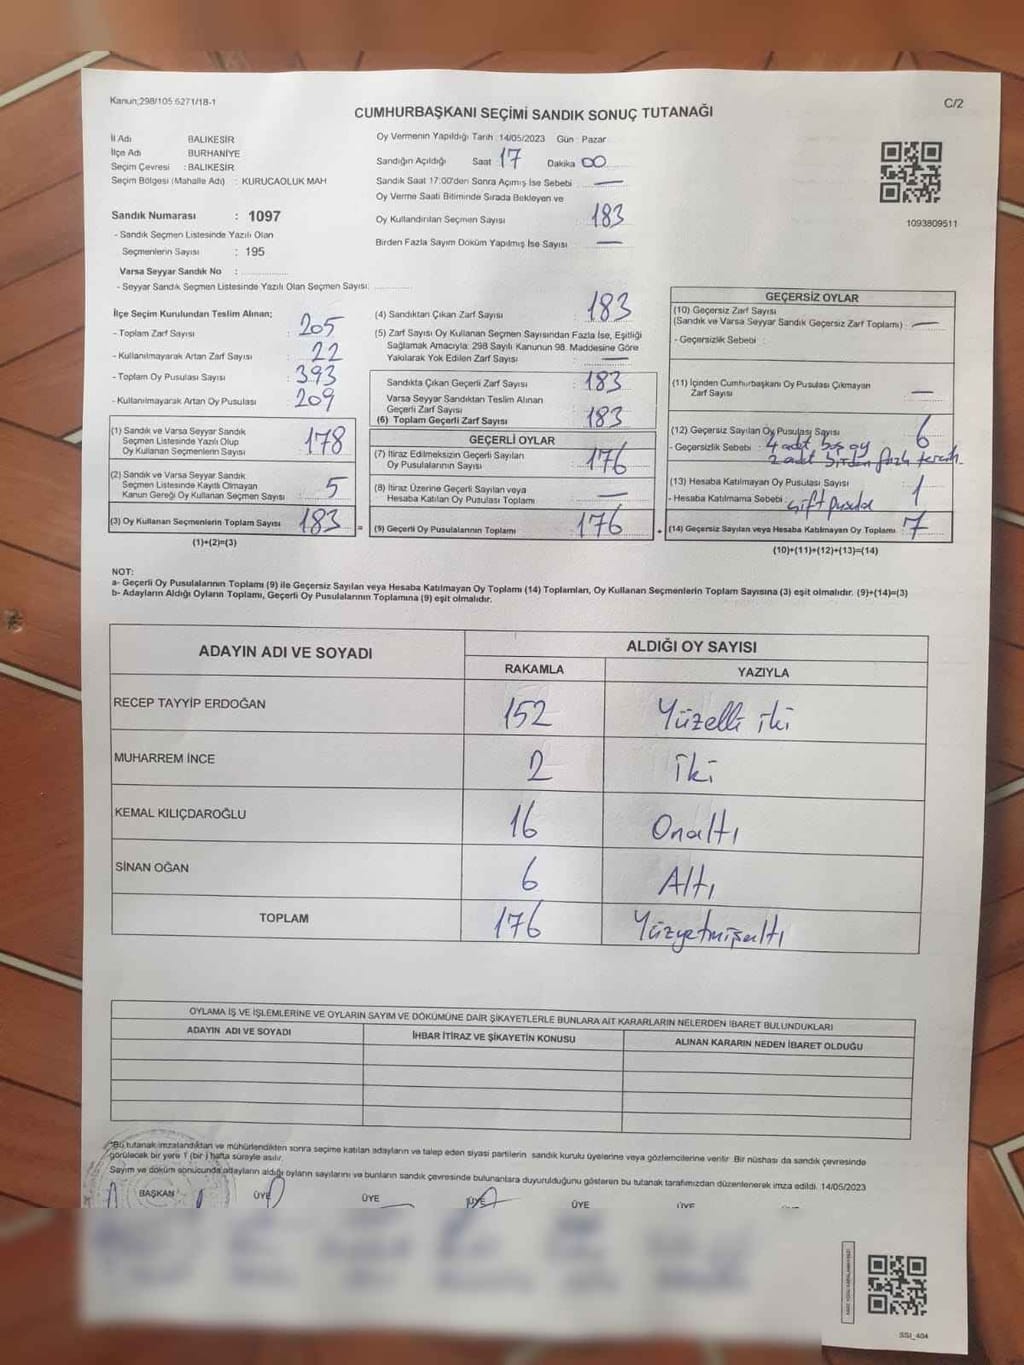 Kanun;298/105 6271/18-1
C/2
CUMHURBAŞKANI SEÇİMİ SANDIK SONUÇ TUTANAĞI
İl Adı BALIKESİR
İlçe Adı BURHANİYE
Seçim Çevresi : BALIKESİR
Seçim Bölgesi (Mahalle Adı) : KURUCAOLUK MAH
Sandık Numarası : 1097
- Sandık Seçmen Listesinde Yazılı Olan
Seçmenlerin Sayısı : 195
Varsa Seyyar Sandık No :
- Seyyar Sandık Seçmen Listesinde Yazılı Olan Seçmen Sayısı:
Oy Vermenin Yapıldığı Tarih :14/05/2023 Gün : Pazar
Sandığın Açıldığı Saat 17 Dakika 00
Sandık Saat 17:00'den Sonra Açımış İse Sebebi : —
Oy Verme Saati Bitiminde Sırada Bekleyen ve
Oy Kullandırılan Seçmen Sayısı 183
Birden Fazla Sayım Döküm Yapılmış İse Sayısı : —
1093809511
İlçe Seçim Kurulundan Teslim Alınan;
- Toplam Zarf Sayısı : 205
- Kullanılmayarak Artan Zarf Sayısı : 22
- Toplam Oy Pusulası Sayısı : 393
- Kullanılmayarak Artan Oy Pusulası : 209
(1) Sandık ve Varsa Seyyar Sandık
Seçmen Listesinde Yazılı Olup
Oy Kullanan Seçmenlerin Sayısı : 178
(2) Sandık ve Varsa Seyyar Sandık
Seçmen Listesinde Kayıtlı Olmayan
Kanun Gereği Oy Kullanan Seçmen Sayısı : 5
(3) Oy Kullanan Seçmenlerin Toplam Sayısı : 183
(1)+(2)=(3)
=
(4) Sandıktan Çıkan Zarf Sayısı : 183
(5) Zarf Sayısı Oy Kullanan Seçmen Sayısından Fazla İse, Eşitliği
Sağlamak Amacıyla: 298 Sayılı Kanunun 98. Maddesine Göre
Yakılarak Yok Edilen Zarf Sayısı : —
Sandıkta Çıkan Geçerli Zarf Sayısı : 183
Varsa Seyyar Sandıktan Teslim Alınan
Geçerli Zarf Sayısı :
(6) Toplam Geçerli Zarf Sayısı : 183
GEÇERLİ OYLAR
(7) İtiraz Edilmeksizin Geçerli Sayılan
Oy Pusulalarının Sayısı : 176
(8) İtiraz Üzerine Geçerli Sayılan veya
Hesaba Katılan Oy Pusulası Toplamı : —
(9) Geçerli Oy Pusulalarının Toplamı : 176
+
GEÇERSİZ OYLAR
(10) Geçersiz Zarf Sayısı
(Sandık ve Varsa Seyyar Sandık Geçersiz Zarf Toplamı) : —
- Geçersizlik Sebebi :
(11) İçinden Cumhurbaşkanı Oy Pusulası Çıkmayan
Zarf Sayısı : —
(12) Geçersiz Sayılan Oy Pusulası Sayısı : 6
- Geçersizlik Sebebi : 4 adet boş oy
2 adet birden fazla tercih
(13) Hesaba Katılmayan Oy Pusulası Sayısı : 1
- Hesaba Katılmama Sebebi : çift pusula
(14) Geçersiz Sayılan veya Hesaba Katılmayan Oy Toplamı : 7
(10)+(11)+(12)+(13)=(14)
NOT:
a- Geçerli Oy Pusulalarının Toplamı (9) ile Geçersiz Sayılan veya Hesaba Katılmayan Oy Toplamı (14) Toplamları, Oy Kullanan Seçmenlerin Toplam Sayısına (3) eşit olmalıdır. (9)+(14)=(3)
b- Adayların Aldığı Oyların Toplamı, Geçerli Oy Pusulalarının Toplamına (9) eşit olmalıdır.
ADAYIN ADI VE SOYADI ALDIĞI OY SAYISI
RAKAMLA YAZIYLA
RECEP TAYYİP ERDOĞAN 152 Yüzelli iki
MUHARREM İNCE 2 İki
KEMAL KILIÇDAROĞLU 16 Onaltı
SİNAN OĞAN 6 Altı
TOPLAM 176 Yüzyetmişaltı
OYLAMA İŞ VE İŞLEMLERİNE VE OYLARIN SAYIM VE DÖKÜMÜNE DAİR ŞİKAYETLERLE BUNLARA AİT KARARLARIN NELERDEN İBARET BULUNDUKLARI
ADAYIN ADI VE SOYADI İHBAR İTİRAZ VE ŞİKAYETİN KONUSU ALINAN KARARIN NEDEN İBARET OLDUĞU
*Bu tutanak imzalandıktan ve mühürlendikten sonra seçime katılan adayların ve talep eden siyasi partilerin sandık kurulu üyelerine veya gözlemcilerine verilir. Bir nüshası da sandık çevresinde
görülecek bir yere 1 (bir) hafta süreyle asılır.
Sayım ve döküm sonucunda adayların aldığı oyların sayılarını ve bunların sandık çevresinde bulunanlara duyurulduğunu gösteren bu tutanak tarafımızdan düzenlenerek imza edildi. 14/05/2023
BAŞKAN ÜYE ÜYE ÜYE ÜYE ÜYE
SSI_404